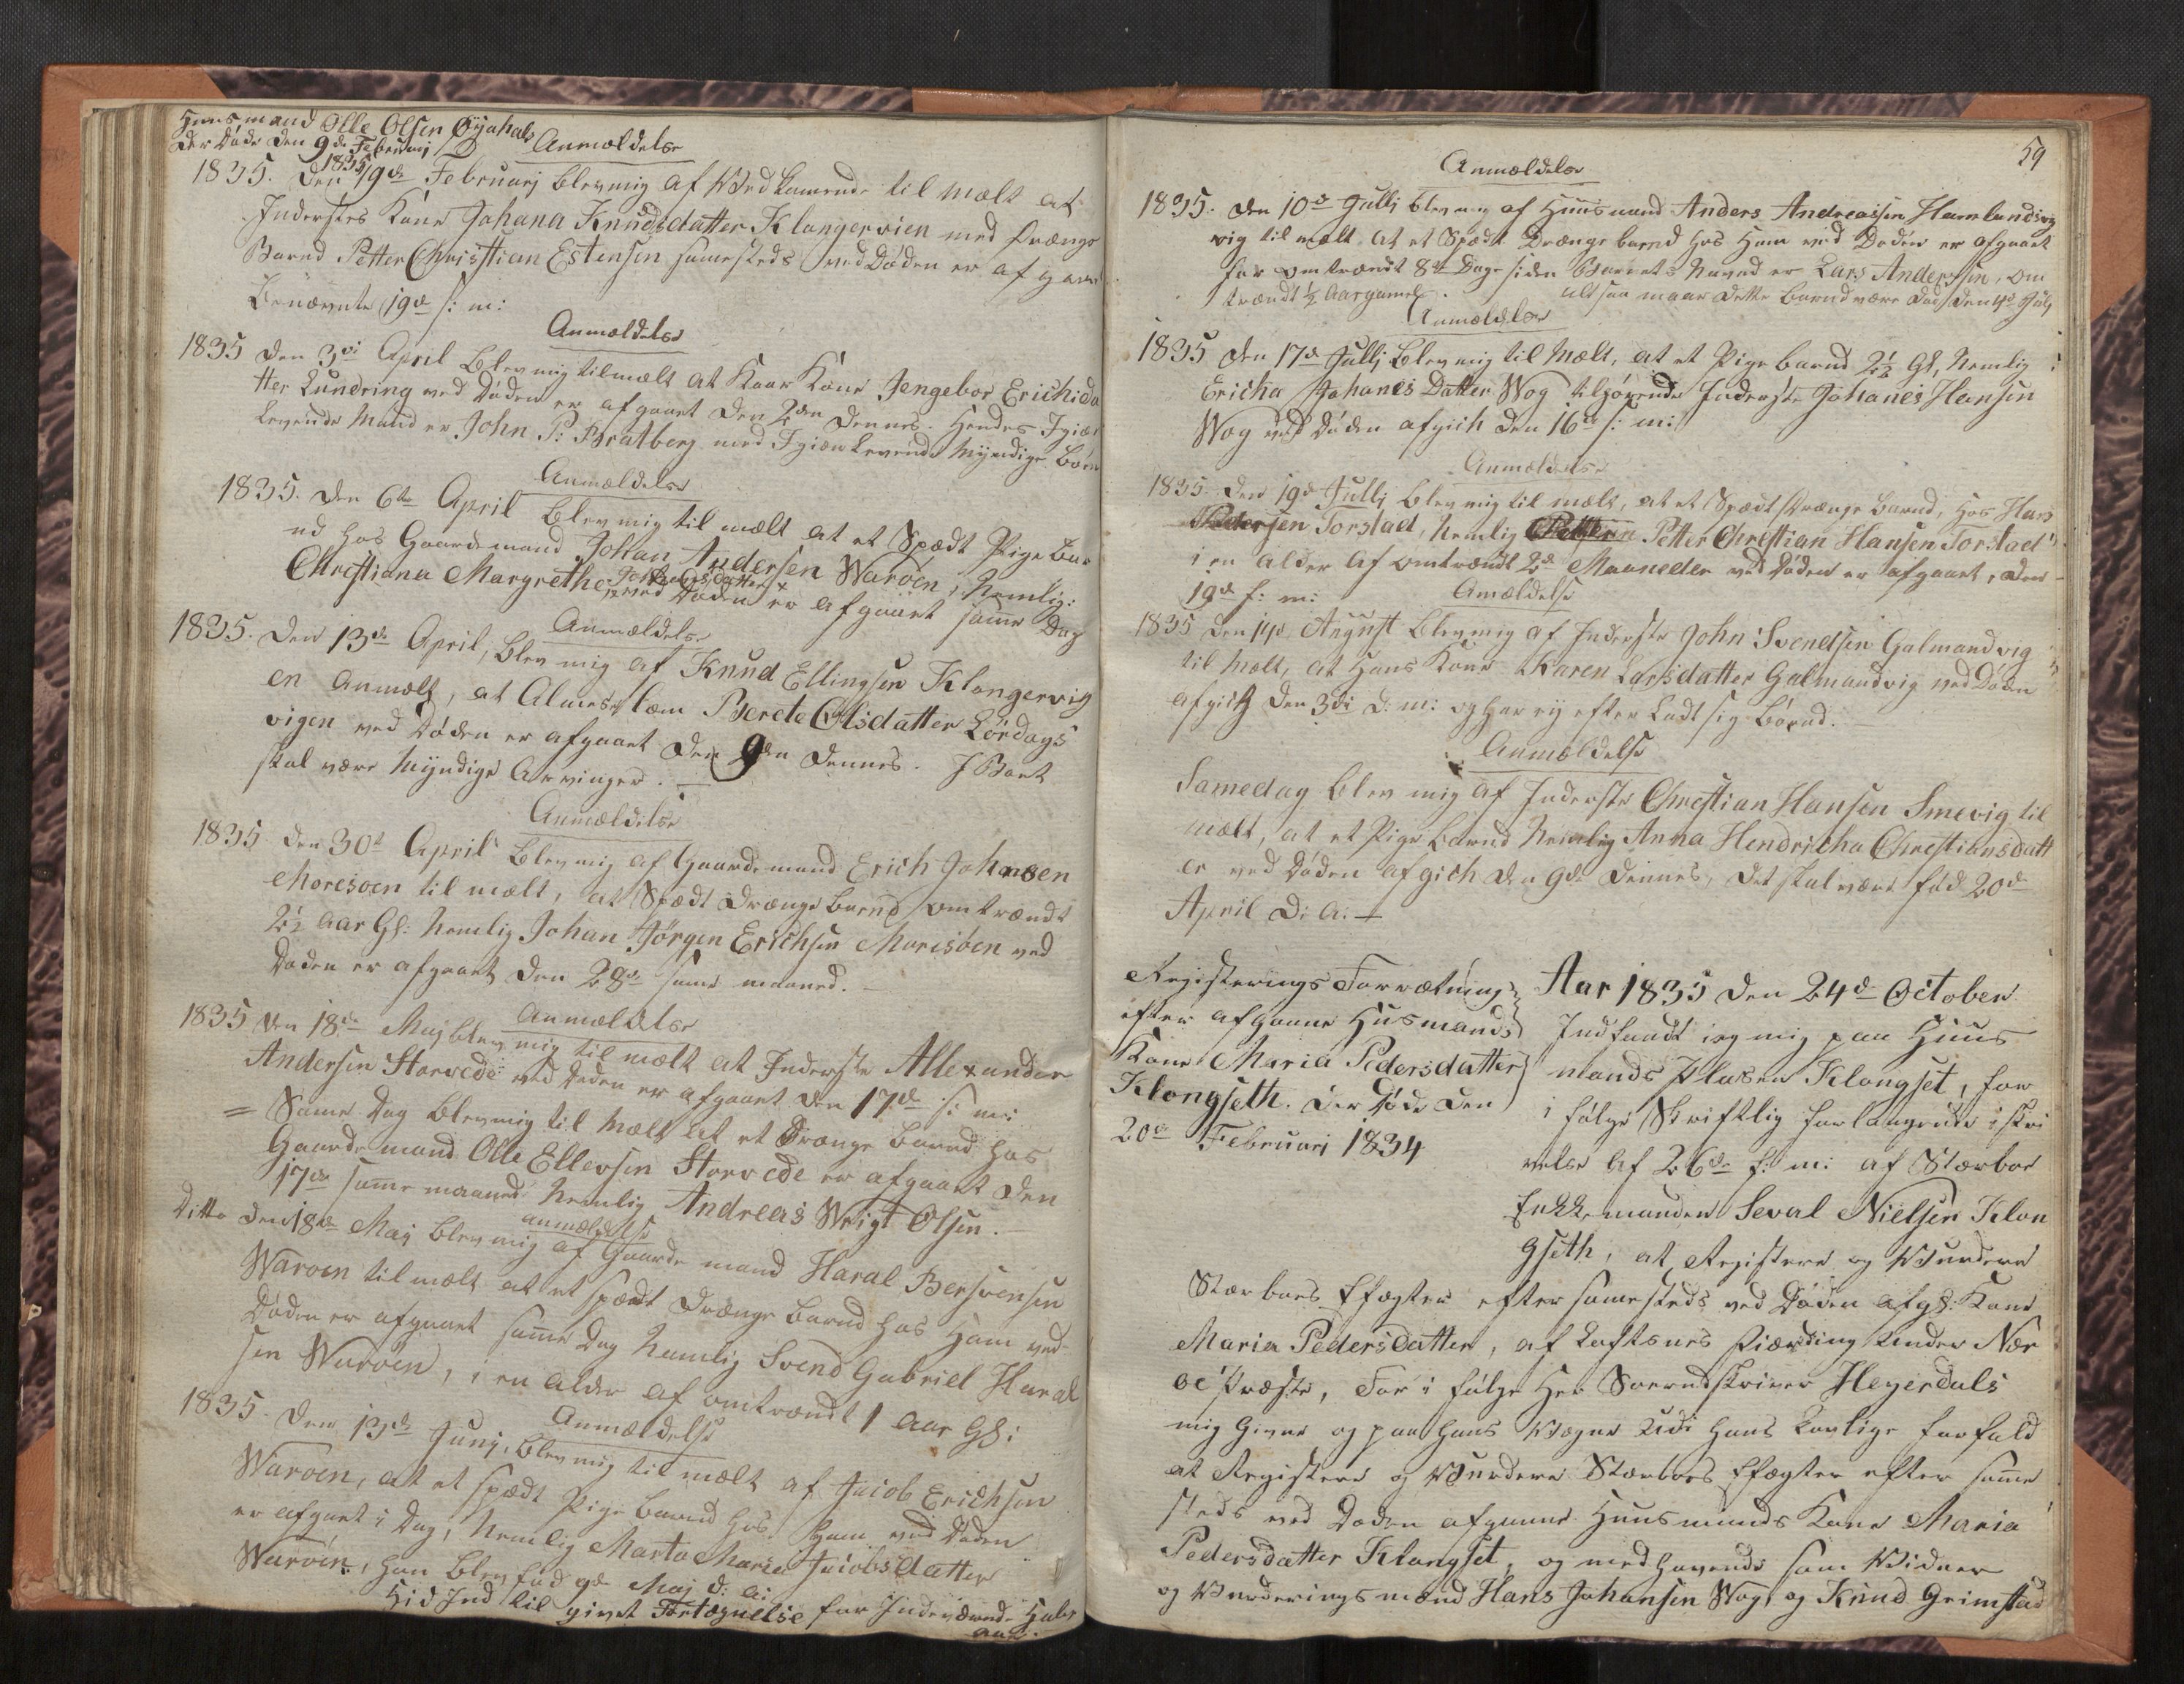 Huusmand Olle Olsen Øyahals
der døde den 9de Februarj 1835
Anmeldelse
1835. den 19de Februarj blev mig af Vedkommende til mælt at
Inderstes Kone Johana Knudsdatter Klongervien med Drænge
Barnd Petter Christtian Estensen samesteds ved Døden er afgaaet
benævnte 19de s: m:
Anmældelse
1835 den 3die April blev mig tilmælt at Kaar Kone Jengebor Erichsda
tter Lundring ved Døden er afgaaet den 2den dennes. Hendes Igien
levende Mand er John P: Bratberg med Igienlevende Myndige Børn
Anmældelse
1835. den 6te April blev mig til mælt at et Spædt Pige Bar
nd hos Gaardemand Johan Andersen Warøen, Nemlig:
Chrestiana Margrethe Johansdatter ved Døden er afgaaet samme Dag
Anmældelse
1835. den 13de April, blev mig af Knud Ellingsen Klongervig
en anmelt, at Almeslem Berete Olsdatter Lørdags
vigen ved Døden er afgaaet den 9den dennes. I Boet
skal være Myndige Arvinger.
Anmældelse
1835 den 30te April blev mig af Gaardemand Erich Johnsen
Moresøen til mælt, at Spædt Drænge Barnd omtrændt
2½ Aar Gl: Nemlig Johan Jørgen Erichsen Morisøen ved
Døden er afgaaet den 28de samme maaned.
Anmældelse
1835 den 18de Maj blev mig til mælt at Inderste Allexander
Andersen Storvede ved Døden er afgaaet den 17de s: m:
= Same Dag blev mig til mælt at et Drænge Barnd hos
Gaardemand Olle Ellevsen Storvede er afgaaet den
17de samme maaned Nemlig Andreas Wrigt Olsen.
anmældelse
Ditto den 18de Maj blev mig af Gaardemand Haral Bersvensen
Waroen til mælt at et spædt Drænge Barnd hos Ham ved
Døden er afgaaet samme Dag Nemlig Svend Gabriel Haral
sen Warøen, i en alder af omtrændt 1 Aar Gl:
Anmældelse
1835. den 13de Junj, blev mig til mælt af Jacob Erichsen
Waroen, at et spædt Pige Barnd hos Ham ved Døden
er afgaaet i Dag, Nemlig Marta Maria Jacobsdatter
Warøen, hun blev fød 9de Maj d: a:
Hid Ind til givet Fortegnelse for Indeværende Halv
aar.
59
Anmældelse
1835. den 10de Jullj blev mig af Huusmand Anders Andreassen Hamlandsvig
vig til mælt at et Spædt Drænge barnd hos Ham ved Døden er afgaaet
for omtrændt 8te Dage siden Barnets Navnd er Lars Andersen, om
trændt ½ Aargamel. altsaa maae dette barnd være død den 4de Julj
Anmældelse
1835 den 17de Jullj blev mig til Mælt, at et Pige barnd 2½ Gl, Nemlig
Ericha Johanes Datter Wog tilhørende Inderste Johanes Hansen
Wog ved Døden afgich den 16de s: m:
Anmældelse
1835. den 19de Jullj blev mig til mælt, at et Spædt Drænge Barnd, hos Hans
Pedersen Torstad, Nemlig Petter Chrestian Hansen Torstad
i en Alder af omtrændt 2de Maaneder ved Døden er afgaaet, den
19de s: m:
Amældelse
1835 den 14de August blev mig af Inderste John Svendsen Galmandvig
til Mælt, at Hans Kone Karen Larsdatter Galmandvig ved Døden
afgich den 3die d: m: og har ej efter Ladt sig Børnd.
Anmældelse
Samedag blev mig af Inderste Chrestian Hansen Smevig til
mælt, at et Pige Barnd Nemlig Anna Hendricha Chrestiansdatt
er ved Døden afgich den 9de dennes, det skal være fød 20de
April d: a:
Registerings Forrætning
efter afgangne Husmands
Kone Maria Pedersdatter
Klongseth. der døde den
20de Februari 1834
Aar 1835 den 24de October
Indfandt jeg mig paa Huus
mands Pladsen Klongset, for
i følge Skriftlig forlangende i skri
velse af 26de f: m: af Stærboe
Enkkemanden Seval Nielsen Klon
gseth, at Registere og Vurdere
Stærboes Effegter efter samesteds ved Døden afgl: Kone
Maria Pedersdatter, af Loftsnes Fiærding under Nær
øe Præste, For i følge Her Sorendskriver Heyerdals
mig givne og paa Hans Vegne udi Hans Lovlige forfald
at Registere og Vurdere Stærboes Effegter efter samme
steds ved Døden afgangne Huusmands Kone Maria
Pedersdatter Klongset, og medhavende som Vidner
og Vurderings mænd Hans Johansen Wog, og Knud Grimstad